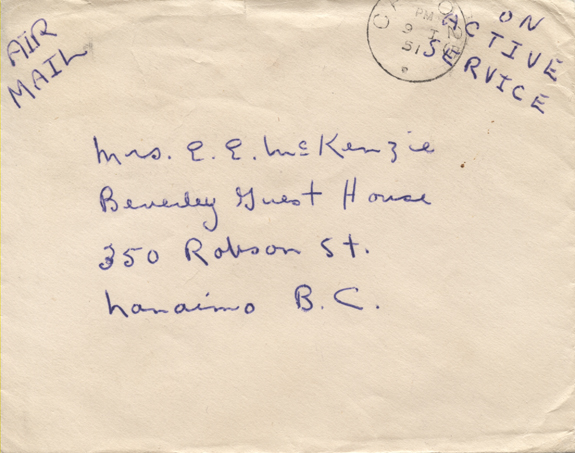 AIR
MAIL
ON
ACTIVE
SERVICE
PM
9
51
Mrs. E. E. McKenzie
Beverley Guest House
350 Robson St.
Nanaimo B.C.